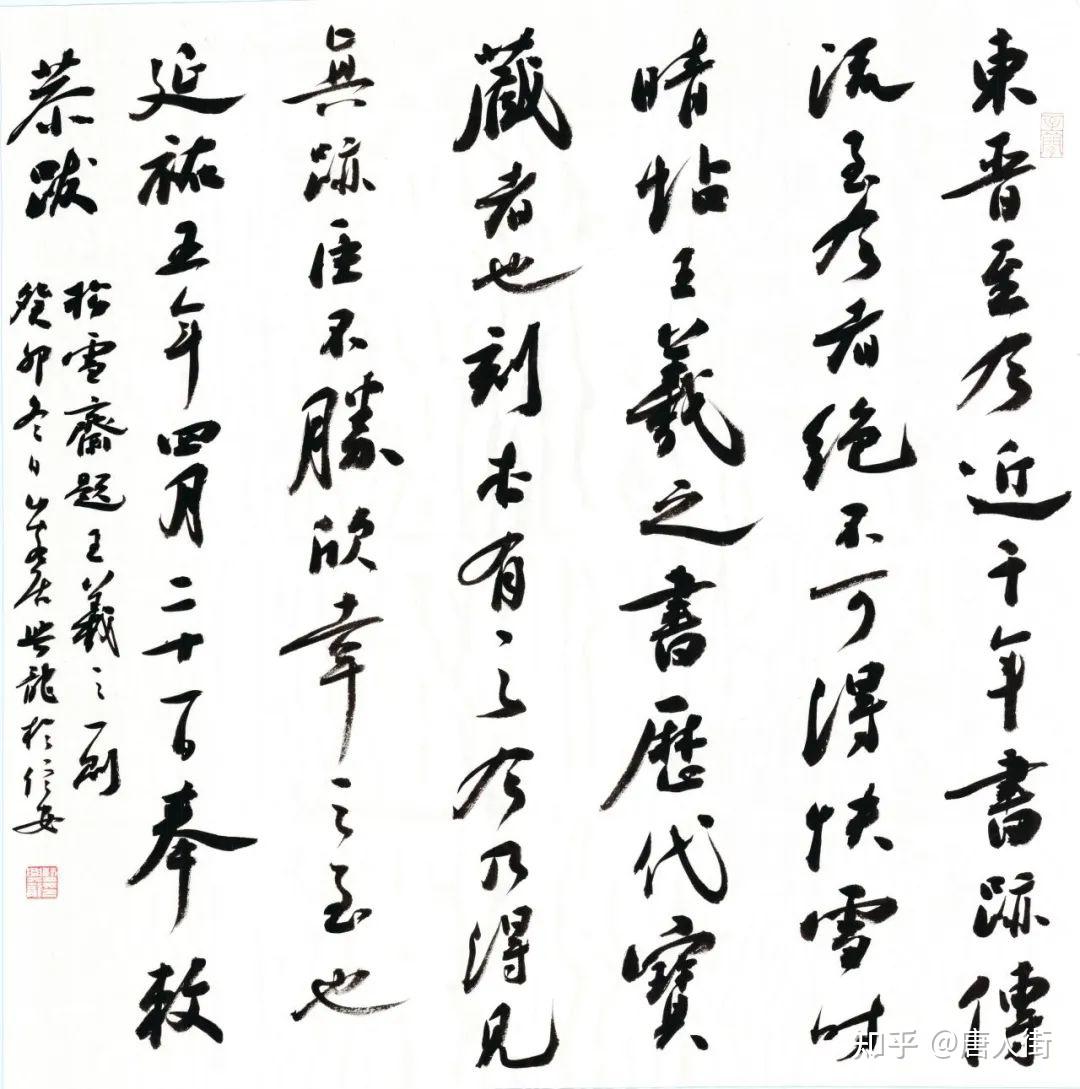 東晉至今近千年書跡傳
流至今者絕不可得快雪時
晴帖王羲之書歷代寶
藏者也刻本有々之今乃得見
眞跡臣不勝欣幸之至也
延祐五年四月二十一日奉敕
恭跋
松雪齋題王羲之一則
癸卯冬日居世龍於信安
知乎 @唐人街